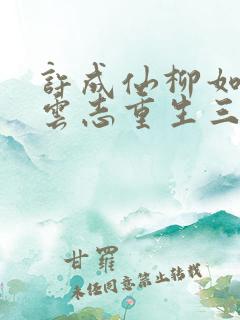 許成仙柳如
雲志重生三
甘羅
未經同意禁止轉載